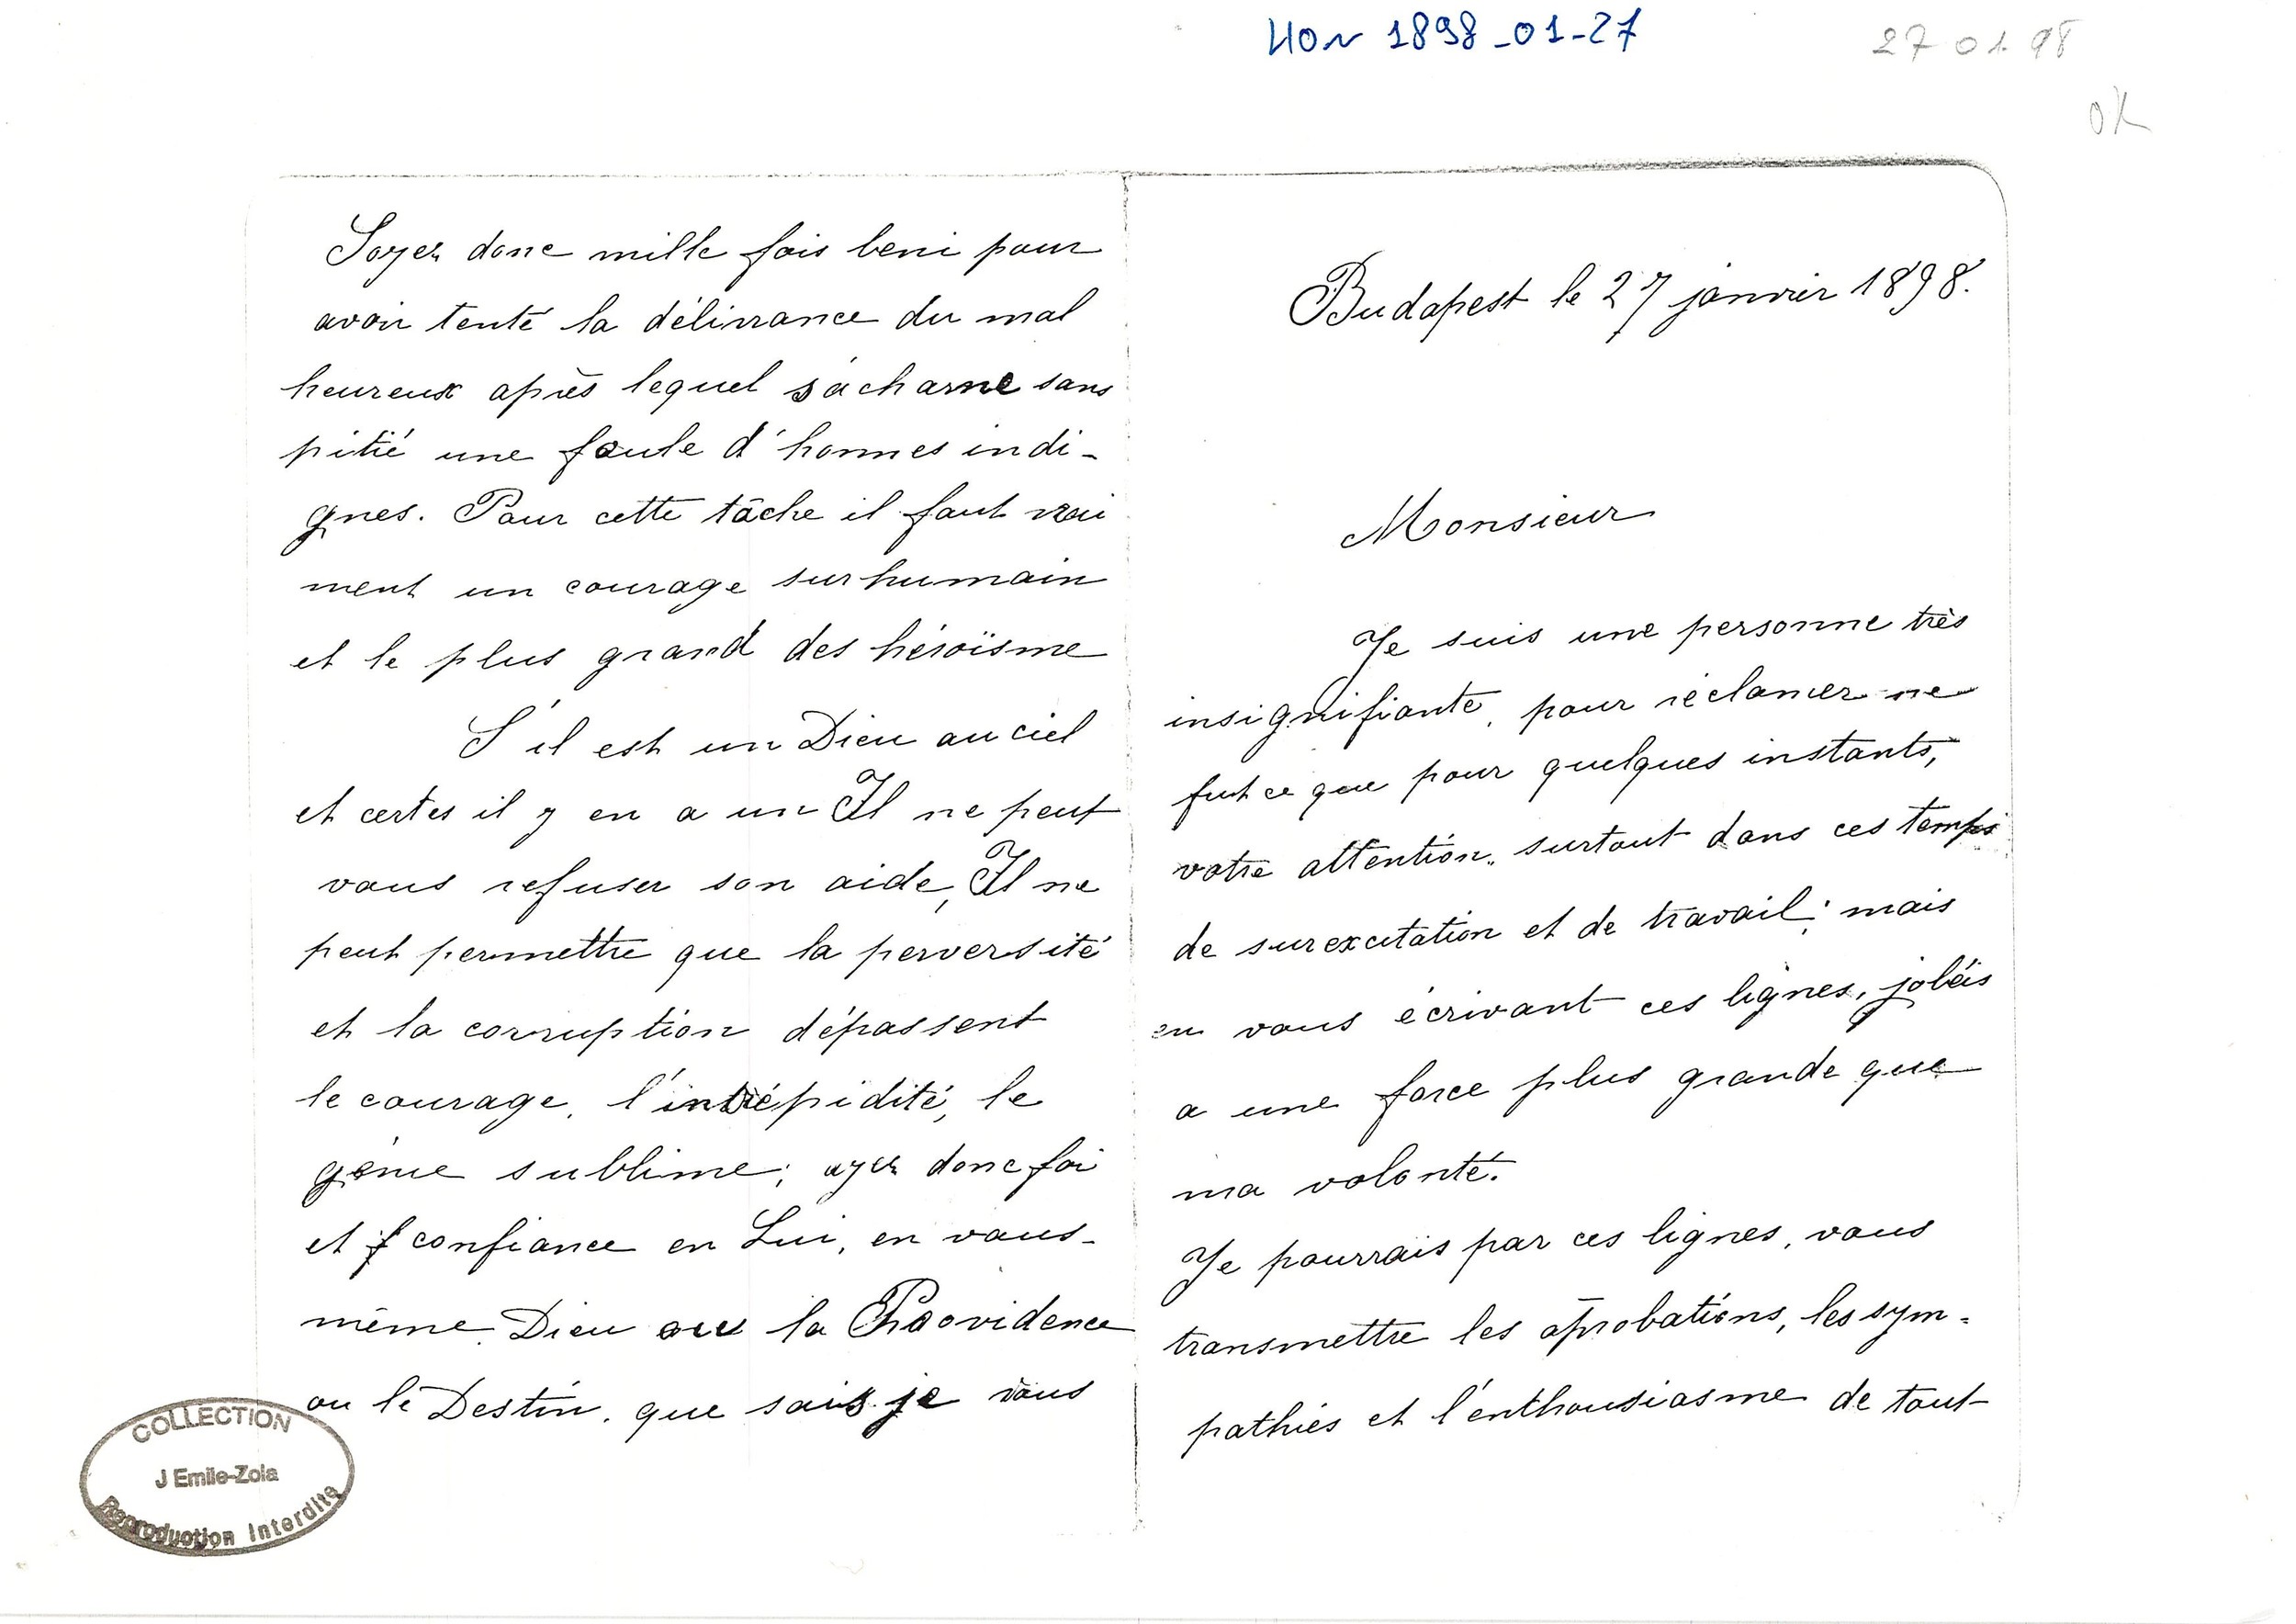 HON 1898_01-27
27 01. 98
OK
Soyez donc mille fois beni pour
avoir tenté la délivrance du mal
heureux après lequel s'acharne sans
pitié une foule d'hommes indi-
gnes. Pour cette tâche il faut vrai
ment un courage surhumain
et le plus grand des héroïsme
S'il est un Dieu au ciel
et certes il y en a un Il ne peut
vous refuser son aide, Il ne
peut permettre que la perversité
et la corruption dépassent
le courage, l'intrépidité, le
génie sublime; ayez donc foi
et confiance en Lui, en vous-
même. Dieu ou la Providence
ou le Destin, que sais je vous
COLLECTION
J Emile-Zola
Reproduction Interdite
Budapest le 27 janvier 1898.
Monsieur
Je suis une personne très
insignifiante, pour réclamer ne
fut ce que pour quelques instants,
votre attention, surtout dans ces temps
de surexcitation et de travail; mais
en vous écrivant ces lignes, j'obéis
a une force plus grande que
ma volonté.
Je pourrais par ces lignes, vous
transmettre les aprobations, les sym-
pathies et l'enthousiasme de tout